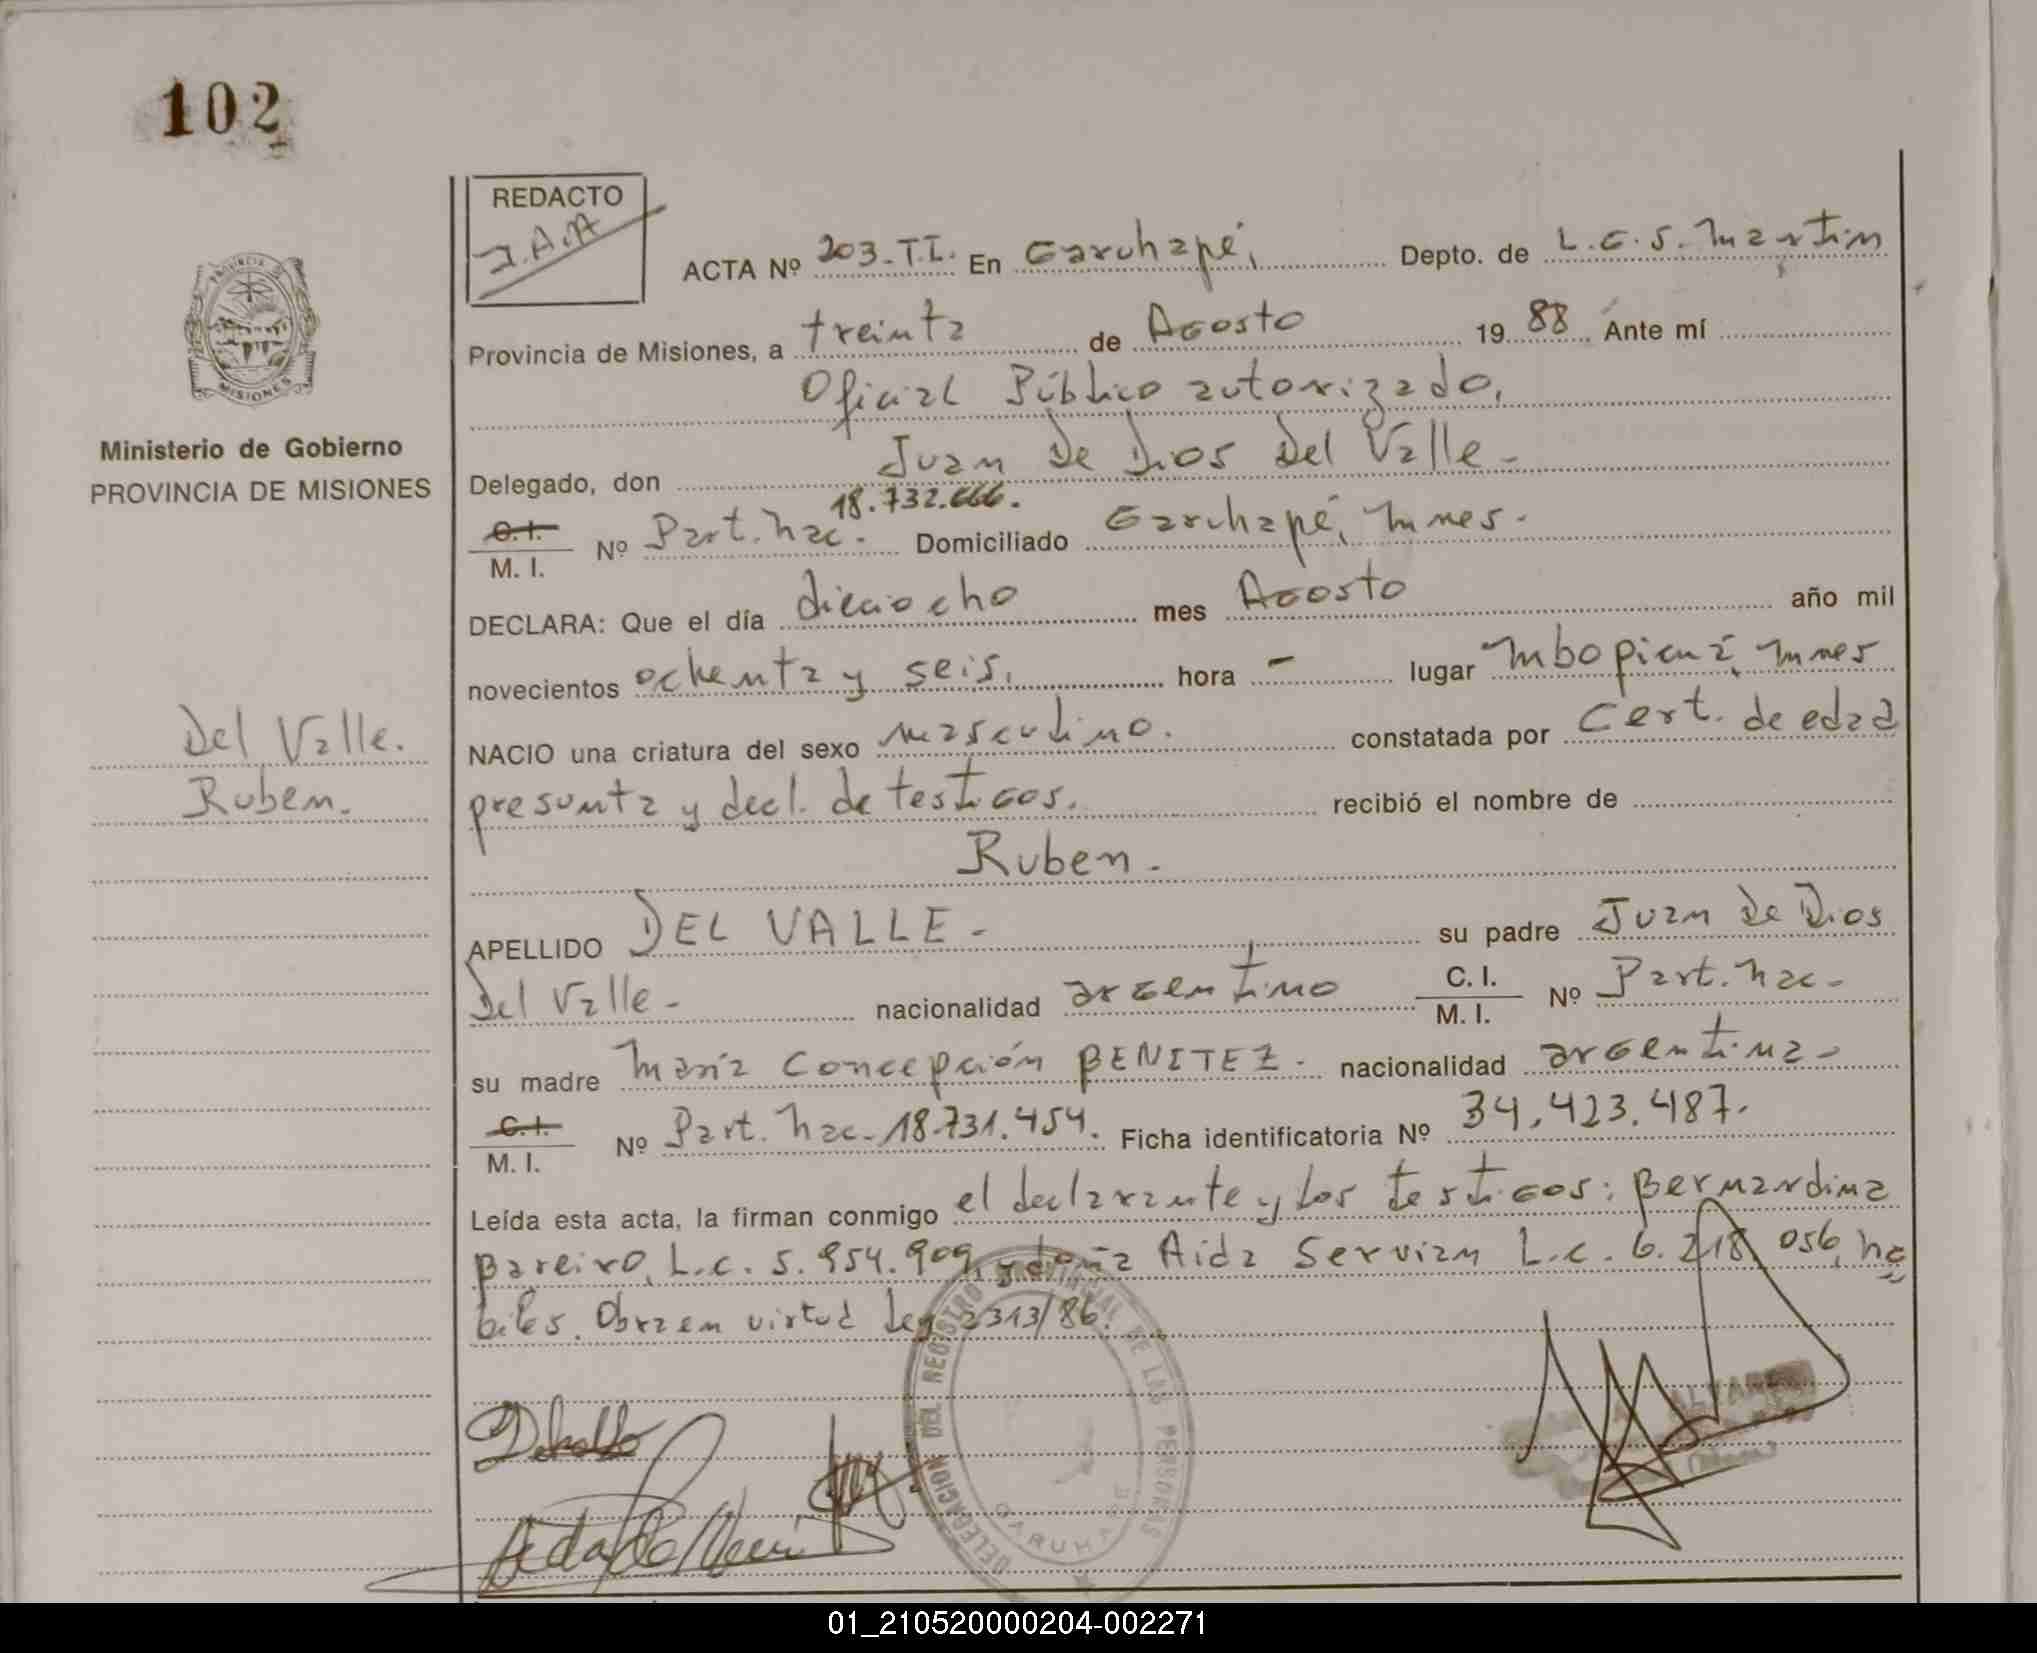 102
REDACTO
J.A.A
ACTA Nº 203-T.I. En Garuhapé, Depto. de L.G.S. Martín
PROVINCIA
MISIONES
Provincia de Misiones, a treinta de Agosto 19 88 Ante mí
Oficial Público autorizado,
Ministerio de Gobierno
PROVINCIA DE MISIONES
Delegado, don Juan De Dios Del Valle-
18.732.666.
C.I.
M. I. Nº Part. Nac. Domiciliado Garuhapé, Mnes.
DECLARA: Que el día dieciocho mes Agosto año mil
novecientos ochenta y seis, hora - lugar Mbopicuá, Mnes
NACIO una criatura del sexo masculino. constatada por Cert. de edad
presunta y decl. de testigos. recibió el nombre de
Del Valle.
Ruben.
Ruben-
APELLIDO DEL VALLE- su padre Juan De Dios
Del Valle- nacionalidad argentino C. I. M. I. Nº Part. Nac-
su madre María Concepción BENITEZ- nacionalidad argentina-
C.I.
M. I. Nº Part. Nac- 18.731.454. Ficha identificatoria Nº 34.423.487.
Leída esta acta, la firman conmigo el declarante y los testigos: Bernardina
Pareiro, L.c. 5.954.909, y doña Aida Servian L.c. 6.218.056, há
biles. Obra en virtud Ley 2313/86.
DELEGACION DEL REGISTRO PROVINCIAL DE LAS PERSONAS
GARUHAPE
ALVAREZ
01_210520000204-002271